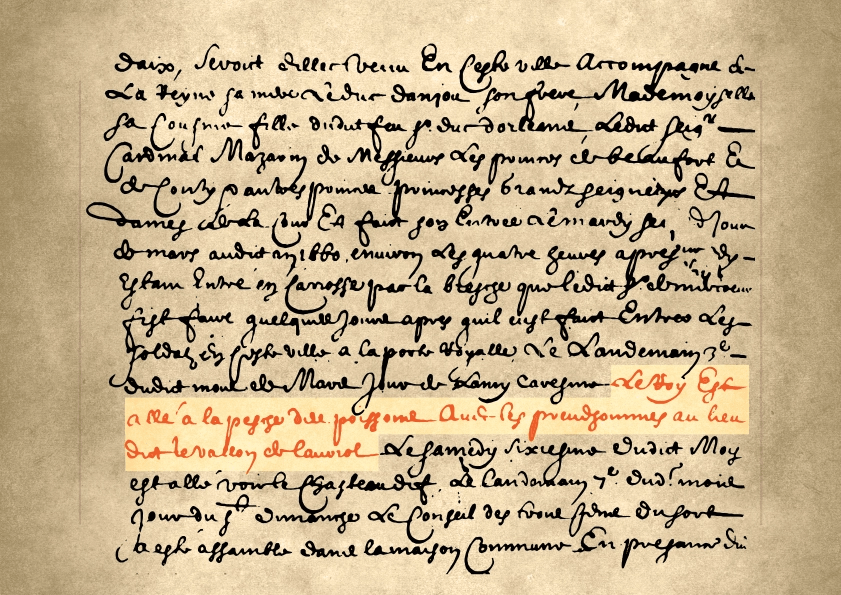 daix, seroit dillec venu En Ceste ville Accompagne de
La Reyne sa mere Le duc danjou son frere Mademoyselle
sa Cousine fille dudit feu sr duc dorleans, Ledit seigr
Cardinal Mazarin de Messieurs Les princes de beaufort Et
de Conty & autres princes princesses Grandz seigneurs Et
dames de La Cour Et faict son Entree Le mardy
de mars audit an 1660, environ Les quatre heures apres
Estant Entré en Carrosse par la bresche que ledict sr de
fist faire quelques Jours apres quil eust faict Entrer Les
soldatz en ceste ville a la porte Royalle Le Landemain 3e
dudit mois de Mars Jour de Caresme Le Roy Est
allé a la pesche des poissons Avec les preudhommes au lieu
dict le vallon de lauriol Le samedy sixiesme dudict Moy
est allé voir le Chasteau dif, Le landemain 7e dudt mois
Jour du st dimanche Le Conseil des trois du fort
a esté assamblé dans la maison Commune En presance du